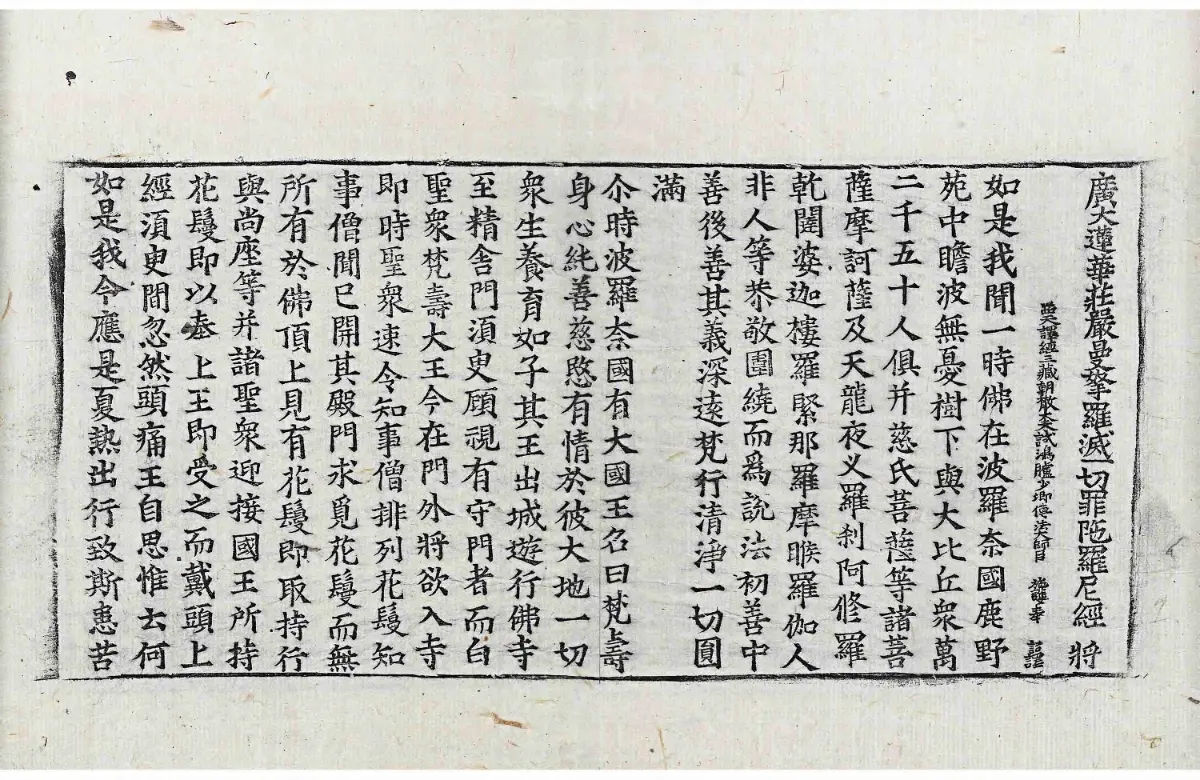 廣大蓮華莊嚴曼拏羅滅一切罪陁羅尼經 將
西天譯經三藏朝散大夫試鴻臚少卿傳法大師臣 施護奉 詔譯
如是我聞一時佛在波羅奈國鹿野
苑中瞻波無憂樹下與大比丘衆萬
二千五十人俱并慈氏菩薩等諸菩
薩摩訶薩及天龍夜叉羅刹阿修羅
乾闥婆迦樓羅緊那羅摩睺羅伽人
非人等恭敬圍繞而爲說法初善中
善後善其義深遠梵行清淨一切圓
滿
尒時波羅奈國有大國王名曰梵壽
身心純善慈愍有情於彼大地一切
衆生養育如子其王出城遊行佛寺
至精舎門須臾顧視有守門者而白
聖衆梵壽大王今在門外將欲入寺
即時聖衆速令知事僧排列花鬘知
事僧聞已開其殿門求覓花鬘而無
所有於佛頂上見有花鬘即取持行
與尚座等并諸聖衆迎接國王所持
花鬘即以奉上王即受之而戴頭上
經須臾間忽然頭痛王自思惟云何
如是我今應是夏熱出行致斯患苦